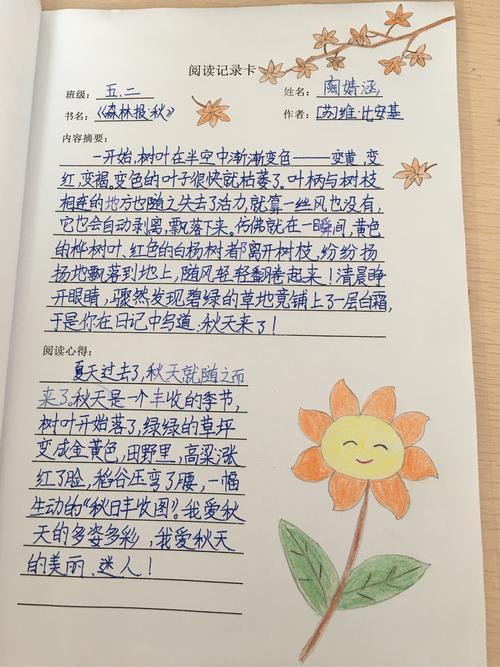 阅读记录卡
班级：五.二 姓名：陶婧涵
书名：《森林报·秋》 作者：[苏]维·比安基
内容摘要：
一开始,树叶在半空中渐渐变色——变黄,变
红,变褐。变色的叶子很快就枯萎了。叶柄与树枝
相连的地方也随之失去了活力,就算一丝风也没有,
它也会自动剥离,飘落下来。仿佛就在一瞬间,黄色
的桦树叶、红色的白杨树者都离开树枝,纷纷扬
扬地飘落到地上,随风轻轻翻卷起来!清晨睁
开眼睛,骤然发现碧绿的草地竟铺上了一层白霜,
于是你在日记中写道:秋天来了!
阅读心得：
夏天过去了,秋天就随之而
来了。秋天是一个丰收的季节,
树叶开始落了,绿绿的草坪
变成金黄色,田野里,高粱涨
红了脸,稻谷压弯了腰,一幅
生动的“秋日丰收图”。我爱秋
天的多姿多彩,我爱秋天
的美丽、迷人!